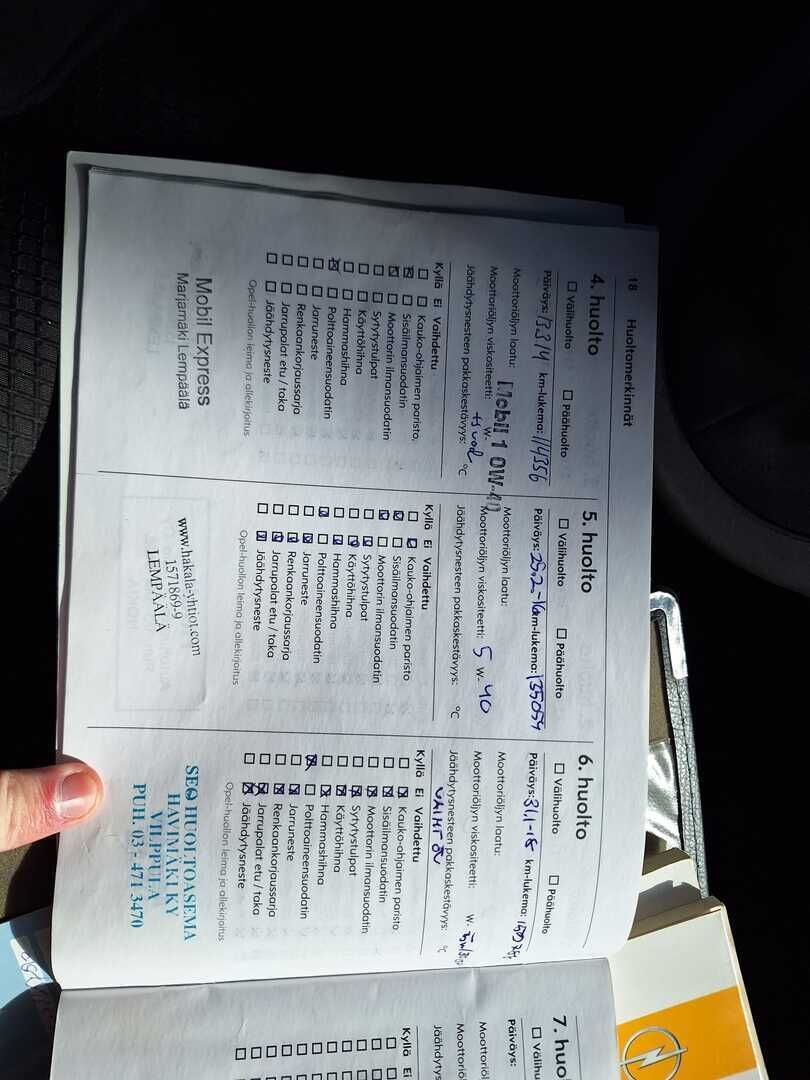 18 Huoltomerkinnät
4. huolto
☐ Välihuolto ☐ Päähuolto
Päiväys: 13.3.14 km-lukema: 114356
Moottoriöljyn laatu: Mobil 1 0W-40
Moottoriöljyn viskositeetti: W-
Jäähdytysnesteen pakkaskestävyys: °C
Kyllä Ei Vaihdettu
☐ ☐ Kauko-ohjaimen paristo
☒ ☐ Sisäilmansuodatin
☒ ☐ Moottorin ilmansuodatin
☐ ☐ Sytytystulpat
☐ ☐ Käyttöhihna
☐ ☐ Hammashihna
☒ ☐ Polttoaineensuodatin
☐ ☐ Jarruneste
☐ ☐ Renkaankorjaussarja
☐ ☐ Jarrupalat etu / taka
☐ ☐ Jäähdytysneste
Opel-huollon leima ja allekirjoitus
Mobil Express
Marjamäki Lempäälä
5. huolto
☐ Välihuolto ☐ Päähuolto
Päiväys: km-lukema: 135054
Moottoriöljyn laatu:
Moottoriöljyn viskositeetti: 5 W- 40
Jäähdytysnesteen pakkaskestävyys: °C
Kyllä Ei Vaihdettu
☐ ☒ Kauko-ohjaimen paristo
☒ ☐ Sisäilmansuodatin
☒ ☐ Moottorin ilmansuodatin
☐ ☒ Sytytystulpat
☐ ☒ Käyttöhihna
☐ ☒ Hammashihna
☒ ☐ Polttoaineensuodatin
☐ ☒ Jarruneste
☐ ☒ Renkaankorjaussarja
☐ ☒ Jarrupalat etu / taka
☐ ☒ Jäähdytysneste
Opel-huollon leima ja allekirjoitus
www.hakala-yhtiot.com
1571869-9
LEMPÄÄLÄ
6. huolto
☐ Välihuolto ☐ Päähuolto
Päiväys: 31.1-18 km-lukema:
Moottoriöljyn laatu:
Moottoriöljyn viskositeetti: W-
Jäähdytysnesteen pakkaskestävyys: °C
Kyllä Ei Vaihdettu
☐ ☒ Kauko-ohjaimen paristo
☐ ☒ Sisäilmansuodatin
☐ ☒ Moottorin ilmansuodatin
☐ ☒ Sytytystulpat
☐ ☒ Käyttöhihna
☐ ☒ Hammashihna
☒ ☐ Polttoaineensuodatin
☐ ☒ Jarruneste
☐ ☒ Renkaankorjaussarja
☐ ☒ Jarrupalat etu / taka
☐ ☒ Jäähdytysneste
Opel-huollon leima ja allekirjoitus
SEO HUOLTOASEMA
HAVIMÄKI KY
VILPPULA
PUH. 03 - 471 3470
7. huol
☐ Välihu
Päiväys:
Moottoriöl
Moottoriöl
Jäähdytys
Kyllä Ei